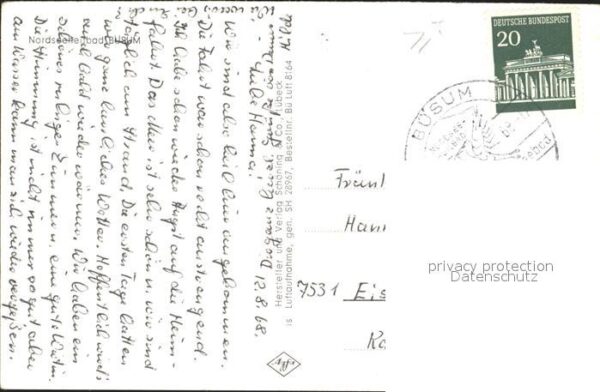 Nordseeheilbad BÜSUM
12.8.68.
Liebe Hanna!
Wir sind alle heil hier angekommen.
Die Fahrt war schon recht anstrengend.
Ich habe schon wieder Angst auf die Heim-
fahrt. Das Meer ist sehr schön u. wir sind
täglich am Strand. Die ersten Tage hatten
wir ganz herrliches Wetter. Hoffentlich wird's
bald wieder wärmer. Wir haben ein
schönes ruhiges Zimmer u. eine gute Wirtin.
Die Stimmung ist nicht immer so gut aber
am Wasser kann man sich wieder vergessen.
Hersteller und Verlag Schöning & Co., Lübeck
is Luftaufnahme, gen. SH 28967, Bestellnr. Bü Luft 8164
Agfa
DEUTSCHE BUNDESPOST
20
BÜSUM
Fräul
Hann
7531 Eis
Ka
privacy protection
Datenschutz